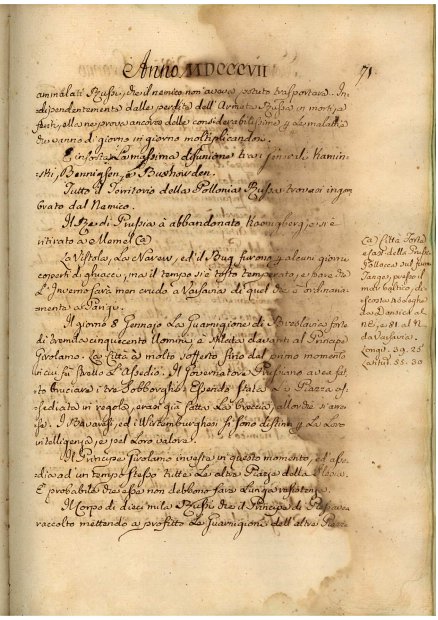 Anno MDCCCVII
71
ammalati Russi, che il nemico non aveva potuto trasportare. In
dipendentemente dalle perdite dell'Armata Russa in morti, e
feriti, ella ne prova ancora delle considerabilissime p le malattie
che vanno di giorno in giorno moltiplicandosi.
È insorta la massima disunione tra i Generali Kamin
ski, Bennigsen, e Buxhowden.
Tutto il Territorio della Pollonia Russa trovasi ingom
brato dal Nemico.
Il Re di Prussia à abbandonato Koenigberg, e si è
ritirato a Memel (a)
La Vistola, la Narew, ed il Bug furono p alcuni giorni
coperti di ghiacci, ma il tempo si è tosto temperato, e pare che
L'Inverno sarà men crudo a Varsavia di quel che è ordinaria
mente a Parigi.
Il giorno 8 Gennajo la Guarnigione di Breslavia forte
di tremila cinquecento Uomini è sfilata davanti al Principe
Girolamo. La Città à molto sofferto fino dal primo momento
in cui fu stretto l'Assedio. Il Governatore Prussiano avea fat
to bruciare i tre Sobborghi. Essendo stata la Piazza as
sediata in regola, erasi già fatta la breccia, allorchè si arre
se. I Bavaresi, ed i Wirtemburghesi si sono distinti p la loro
intelligenza, e pel loro valore.
Il Principe Girolamo investe in questo momento, ed asse
dia ad un tempo stesso tutte le altre Piazze della Slesia.
È probabile che esse non debbono fare lunga resistenza.
Il Corpo di dieci mila Russi che il Principe di
raccolto mettendo a profitto le Guarnigioni dell'altre Piazze
(a) Città Forte
e
Pollacca sul fiume
Tange, presso il
mar baltico, di
scosta
da Danzica al
NE, e 81 al N
da Varsavia.
Longit. 39. 25
Latit. 55. 30